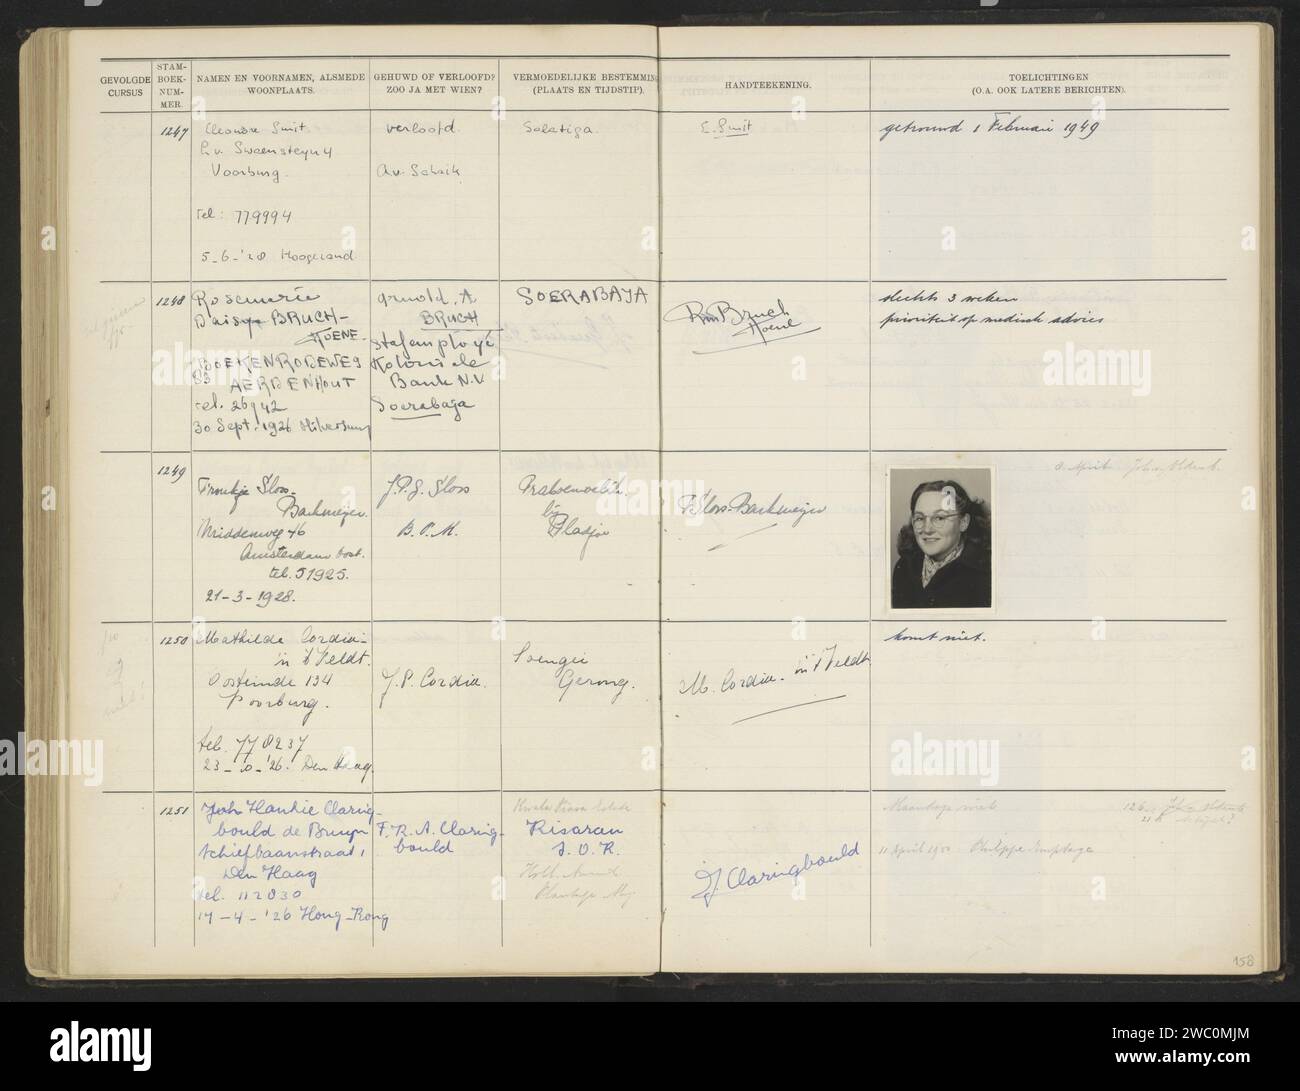 GEVOLGDE CURSUS
STAM-
BOEK-
NUM-
MER.
NAMEN EN VOORNAMEN, ALSMEDE
WOONPLAATS.
GEHUWD OF VERLOOFD?
ZOO JA MET WIEN?
VERMOEDELIJKE BESTEMMING
(PLAATS EN TIJDSTIP).
HANDTEEKENING.
TOELICHTINGEN
(O.A. OOK LATERE BERICHTEN).
1247
Eleonora Smit
Voorburg.
Tel: 779994
5-6-'28 Hoogezand
verloofd.
A. v. Schaik
Salatiga.
E. Smit
getrouwd 1 Februari 1949
1248
Rosemarie
Daisy BRUCH-
HOENE
BOEKENRODEWEG
AERDENHOUT
tel. 26142
30 Sept. 1926 Hilversum
Arnold. A
BRUCH
stafemployé
Koloniale
Bank N.V
Soerabaja
SOERABAJA
Rm Bruch
Hoene
slechts 3 weken
prioriteit op medisch advies
1249
Froukje Sloos-
Barkmeijer.
Middenweg 46
Amsterdam Oost.
tel. 51925.
21-3-1928.
J.P.G. Sloos
B. P. M.
bij
Pladjoe
F Sloos-Barkmeijer
1250
Mathilde Cordia-
in 't Veldt.
Oosteinde 134
Voorburg.
tel. 778237
'26. Den Haag.
J. P. Cordia.
Soengei
Gerong.
M. Cordia - in 't Veldt
komt niet.
1251
Joh Hankie Claring-
bould de Bruyn
Schiefbaanstraat 1
Den Haag
tel. 112030
17-4-'26 Hong-Kong
F. R. A. Claring-
bould
Kisaran
S. O. K.
J. Claringbould
11 April 1950
158
alamy
Image ID: 2WC0MJM
www.alamy.com